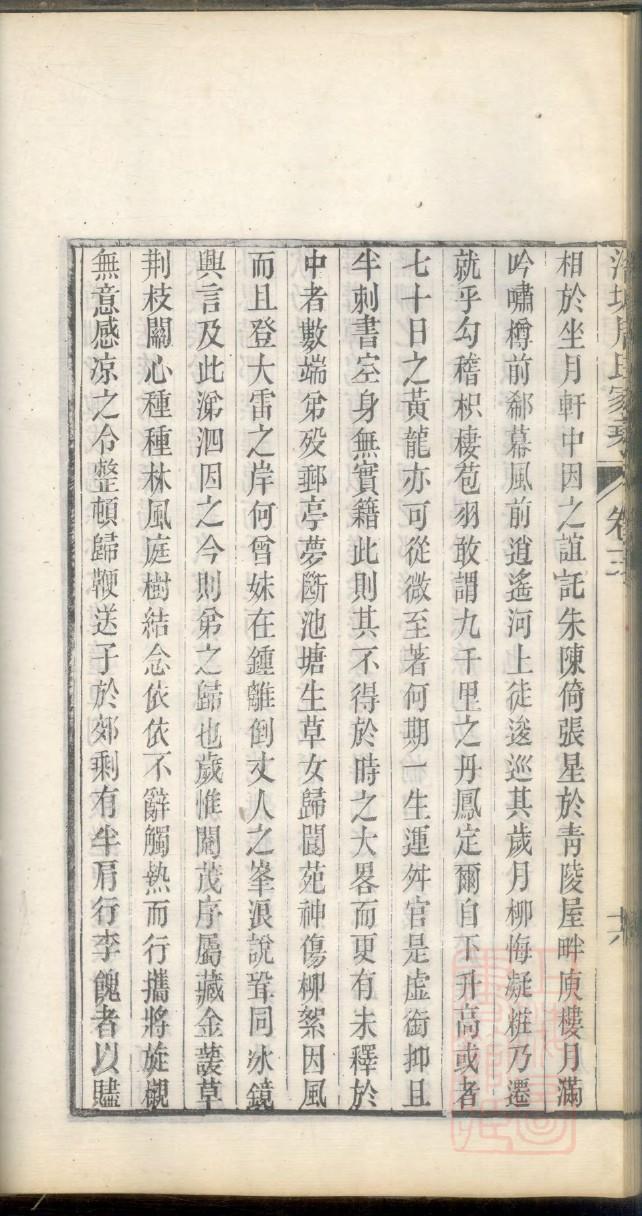 相於坐月軒中因之誼託朱陳倚張星於青陵屋畔庾樓月滿
吟嘯樽前郗幕風前逍遙河上徒逡巡其歲月柳悔凝粧乃遷
就乎勾稽枳棲苞羽敢謂九千里之丹鳳定爾自下升高或者
七十日之黃龍亦可從微至著何期一生運舛官是虛銜抑且
半刺書空身無實籍此則其不得於時之大畧而更有未釋於
中者數端弟歿郵亭夢斷池塘生草女歸閬苑神傷柳絮因風
而且登大雷之岸何曾妹在鍾離倒丈人之峯浪說聟同冰鏡
興言及此涕泗因之今則弟之歸也歲惟閹茂序屬藏金蓑草
荆枝關心種種林風庭樹結念依依不辭觸熱而行攜將旋櫬
無意感凉之令整頓歸鞭送子於郊剩有半肩行李餽者以贐
周氏家
卷三
十八